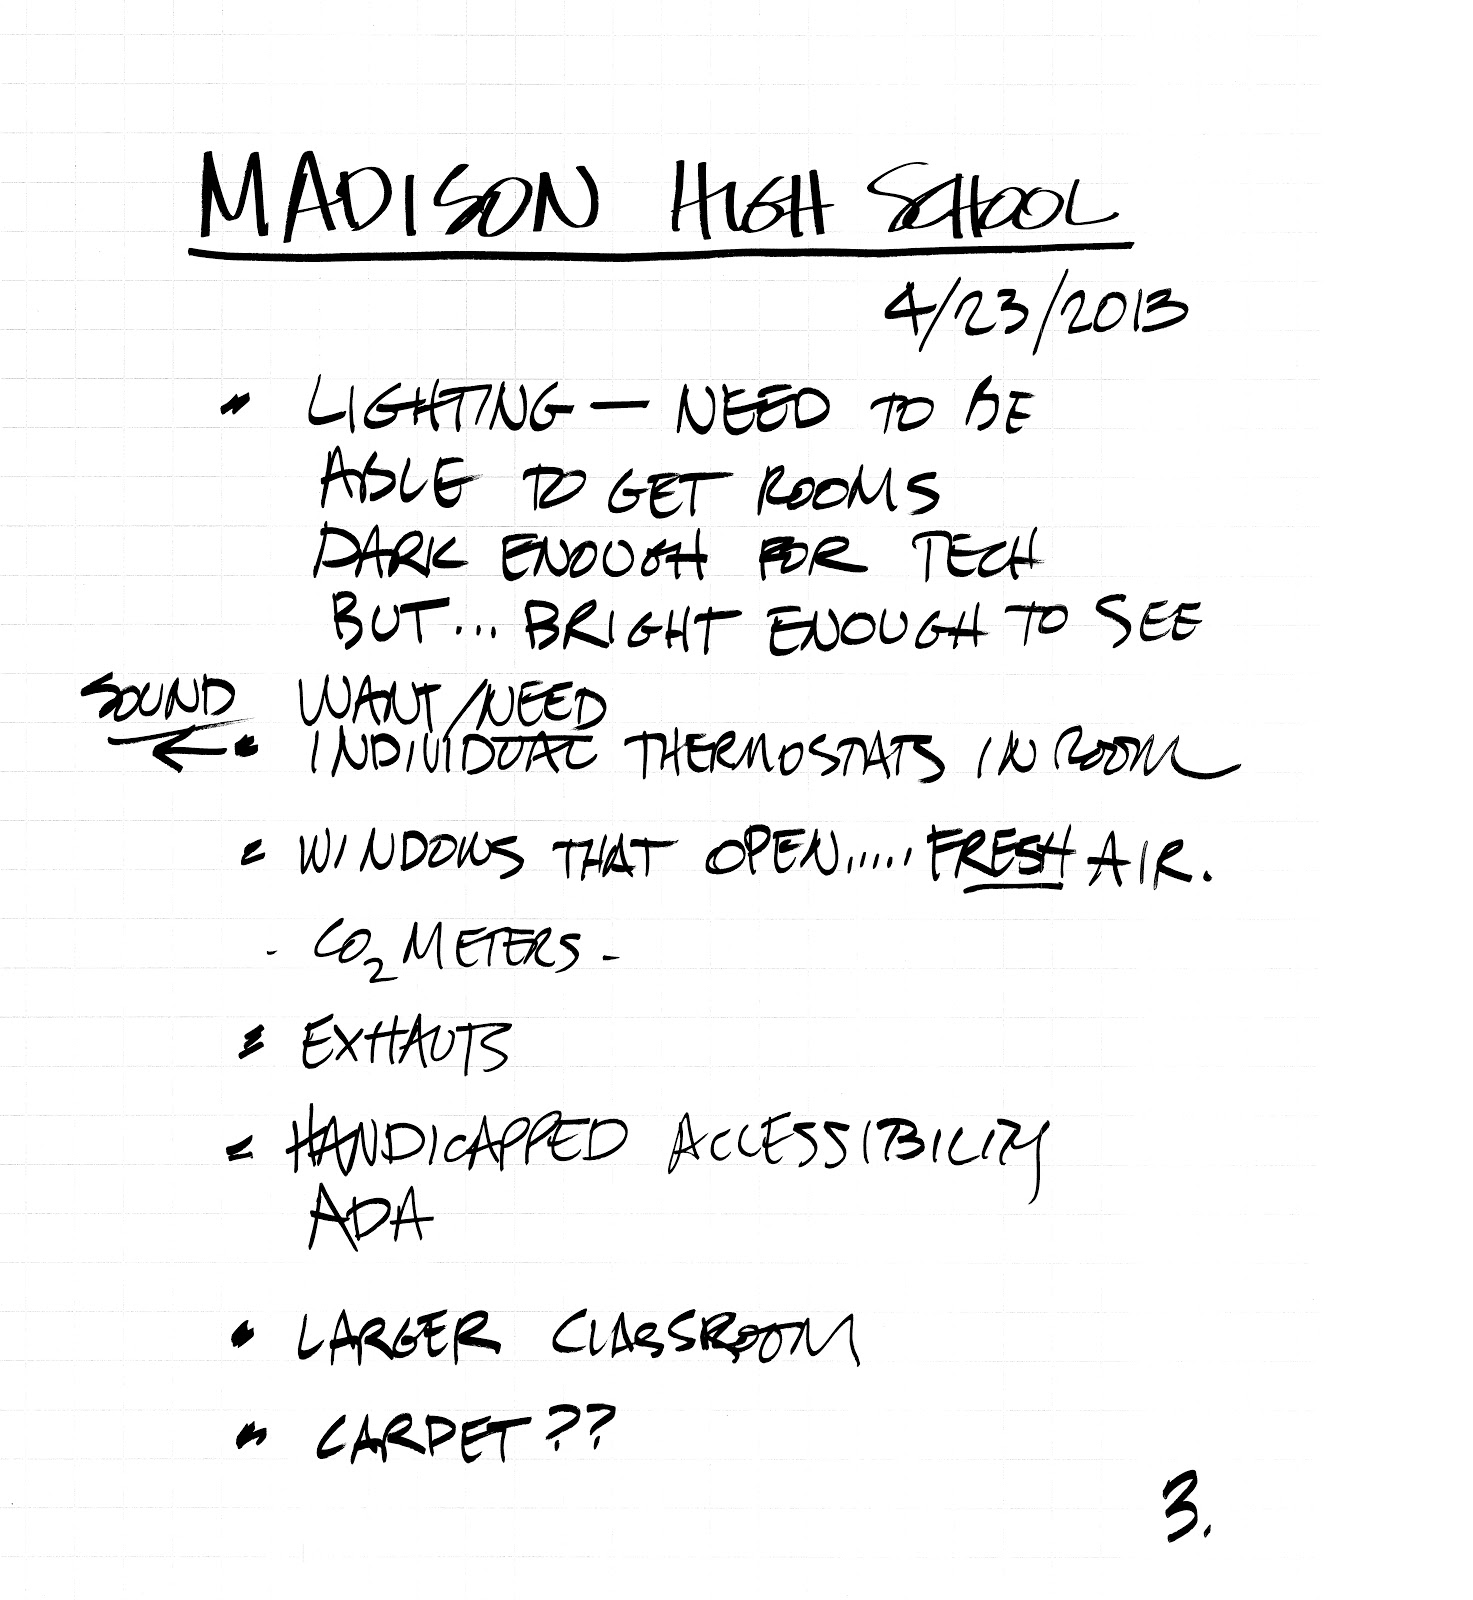 MADISON HIGH SCHOOL
4/23/2013
LIGHTING — NEED TO BE
ABLE TO GET ROOMS
DARK ENOUGH FOR TECH
BUT... BRIGHT ENOUGH TO SEE
SOUND WANT/NEED
INDIVIDUAL THERMOSTATS IN ROOM
WINDOWS THAT OPEN..... FRESH AIR.
- CO2 METERS -
EXHAUTS
HANDICAPPED ACCESSIBILITY
ADA
LARGER CLASSROOM
CARPET??
3.